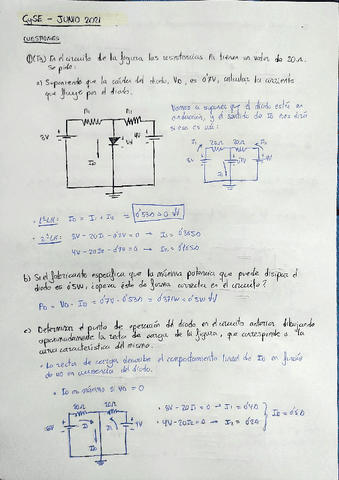 CySE - JUNIO 2021
CUESTIONES
En el circuito de la figura las resistencias R1 tienen un valor de 20Ω.
Se pide:
a) Suponiendo que la caída del diodo, VD, es 0'7V, calcular la corriente
que fluye por el diodo.
Vamos a suponer que el diodo está en
conducción, y el sentido de ID nos dirá
si eso es así:
R1 R1
ID
20Ω 20Ω
I1 I2
ID
· 1ª LK: ID = I1 + I2 =
· 2ª LK: - 20I1 - 0'7V = 0 → I1 =
4V - 20I2 - 0'7V = 0 → I2 =
b) Si el fabricante especifica que la máxima potencia que puede disipar el
diodo es 0'5W, ¿opera éste de forma correcta en el circuito?
PD = VD · ID =
c) Determinar el punto de operación del diodo en el circuito anterior dibujando
aproximadamente la recta de carga de la figura, que corresponde a la
curva característica del mismo.
· La recta de carga describe el comportamiento lineal de ID en función
de VD en ausencia del diodo.
· ID es máximo si VD = 0
20Ω 20Ω
I1 I2
ID
· - 20I1 = 0 → I1 =
· 4V - 20I2 = 0 → I2 = 0'2A
ID =